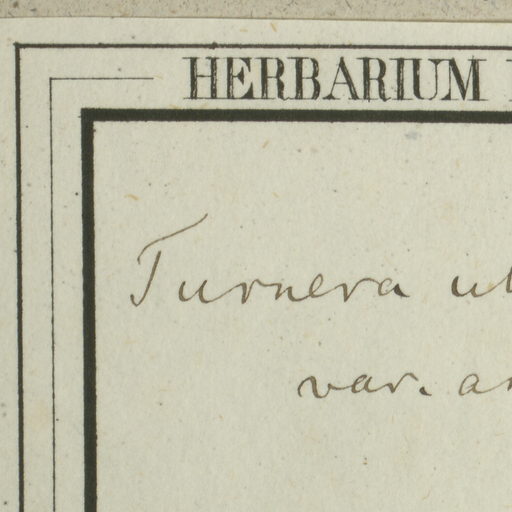 HERBARIUM
Turnera ul
var. an